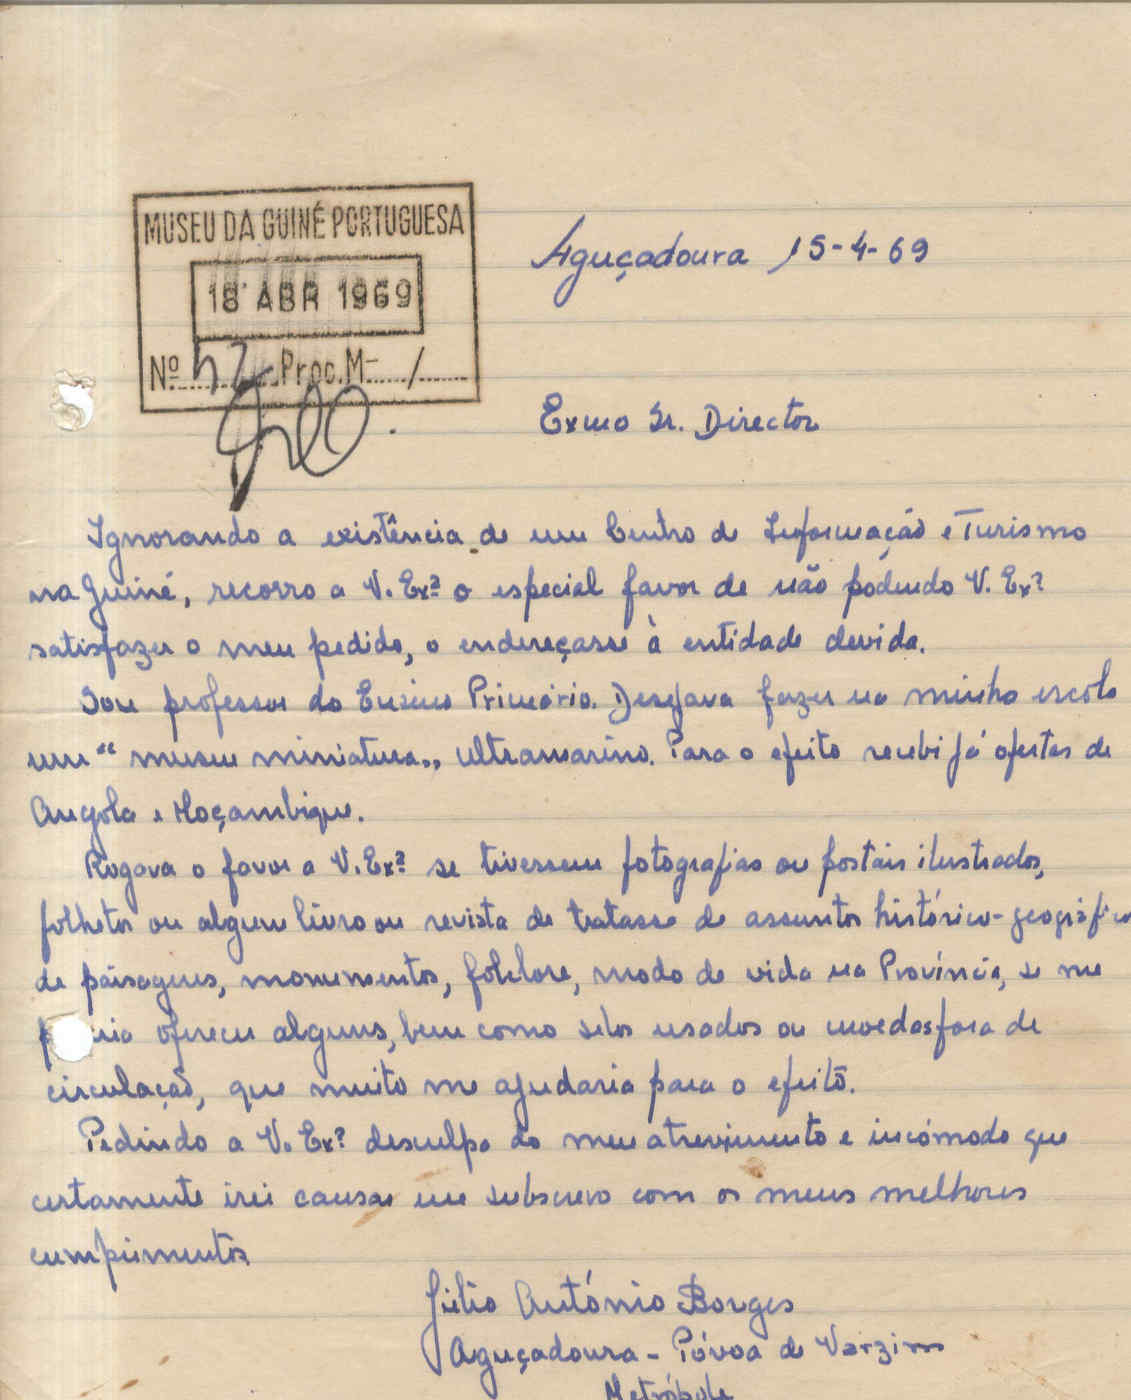 MUSEU DA GUINÉ PORTUGUESA
18 ABR 1969
Nº 52 Proc. M- /
Aguçadoura 15-4-69
Exmo Sr. Director
Ignorando a existência de um Centro de Informação e Turismo
na Guiné, recorro a V. Exª o especial favor de não podendo V. Exª
satisfazer o meu pedido, o endereçasse à entidade devida.
Sou professor do Ensino Primário. Desejava fazer na minha escola
um "museu miniatura„ ultramarino. Para o efeito recebi já ofertas de
Angola e Moçambique.
Rogava o favor a V. Exª se tivessem fotografias ou postais ilustrados,
folhetos ou algum livro ou revista de tratasse de assuntos histórico-geográficos
de paisagens, monumentos, folclore, modo de vida na Província, se me
oferecer alguns, bem como selos usados ou moedas fora de
circulação, que muito me ajudaria para o efeito.
Pedindo a V. Exª desculpa do meu atrevimento e incómodo que
certamente irei causar me subscrevo com os meus melhores
cumprimentos
Júlio António Borges
Aguçadoura - Póvoa de Varzim
Metrópole